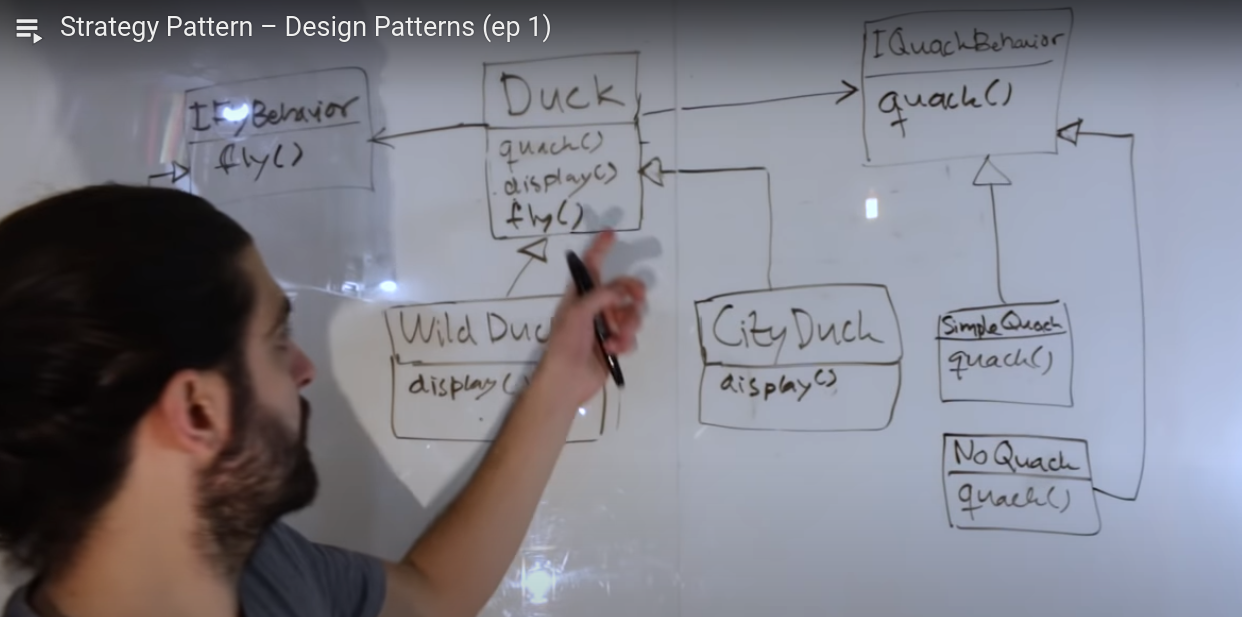 Strategy Pattern – Design Patterns (ep 1)
IFlyBehavior
fly()
Duck
quack()
display()
fly()
IQuackBehavior
quack()
Wild Duck
display()
City Duck
display()
SimpleQuack
quack()
No Quack
quack()